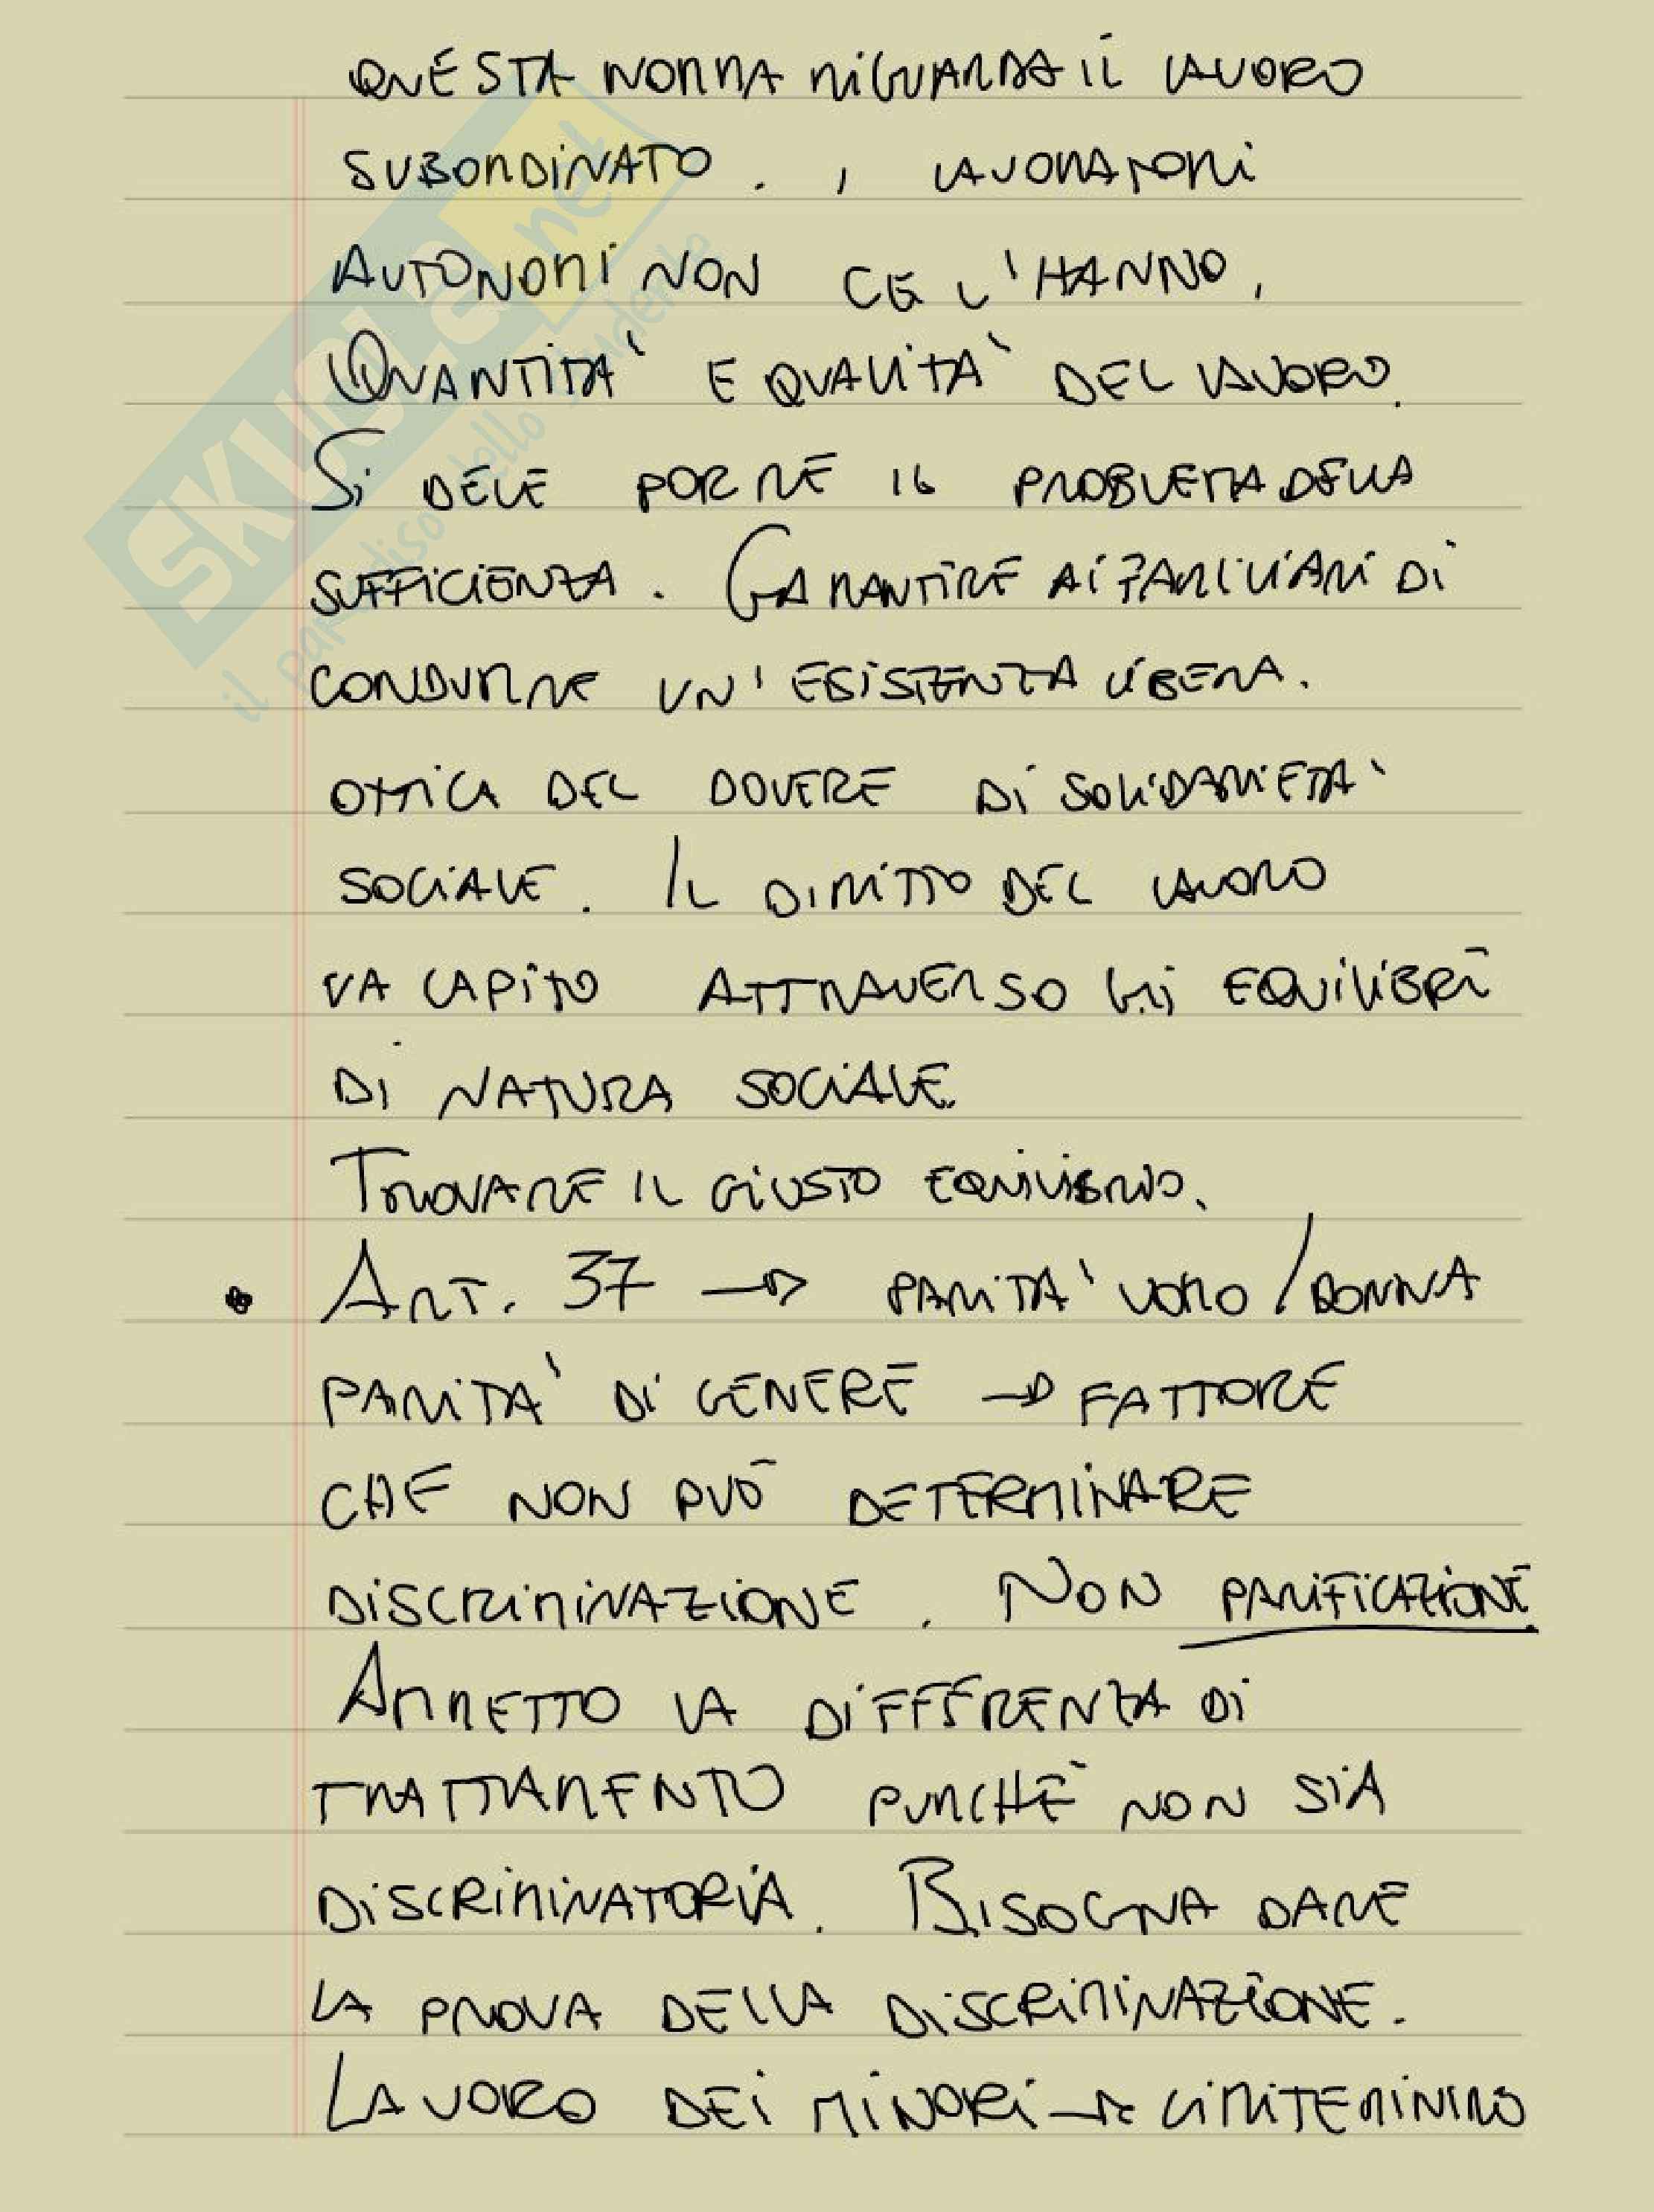 QUESTA NORMA RIGUARDA IL LAVORO
SUBORDINATO. I LAVORATORI
AUTONOMI NON CE L'HANNO.
QUANTITA' E QUALITA' DEL LAVORO.
SI DEVE PORRE IL PROBLEMA DELLA
SUFFICIENZA. GARANTIRE AI FAMILIARI DI
CONDURRE UN'ESISTENZA LIBERA.
OTTICA DEL DOVERE DI SOLIDARIETA'
SOCIALE. IL DIRITTO DEL LAVORO
VA CAPITO ATTRAVERSO GLI EQUILIBRI
DI NATURA SOCIALE.
TROVARE IL GIUSTO EQUILIBRIO.
• ART. 37 → PARITA' UOMO/DONNA
PARITA' DI GENERE → FATTORE
CHE NON PUÒ DETERMINARE
DISCRIMINAZIONE. NON PARIFICAZIONE.
AMMETTO LA DIFFERENZA DI
TRATTAMENTO PURCHÈ NON SIA
DISCRIMINATORIA. BISOGNA DARE
LA PROVA DELLA DISCRIMINAZIONE.
LAVORO DEI MINORI → LIMITE MINIMO
SKUOLA.net
il paradiso dello studente